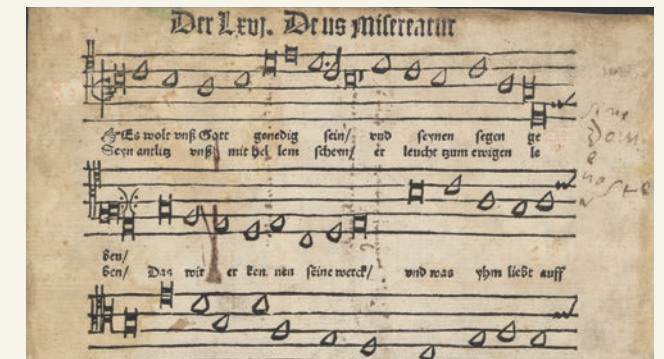 Der Lxvj. Deus Misereatur
Es wolt vnß Gott genedig sein/ vnd seynen segen ge
Seyn antlitz vnß mit hel lem scheyn/ er leucht tzum ewigen le
ben/
ben/ Das wir er ken nen seine werck/ vnd was yhm liebt auff